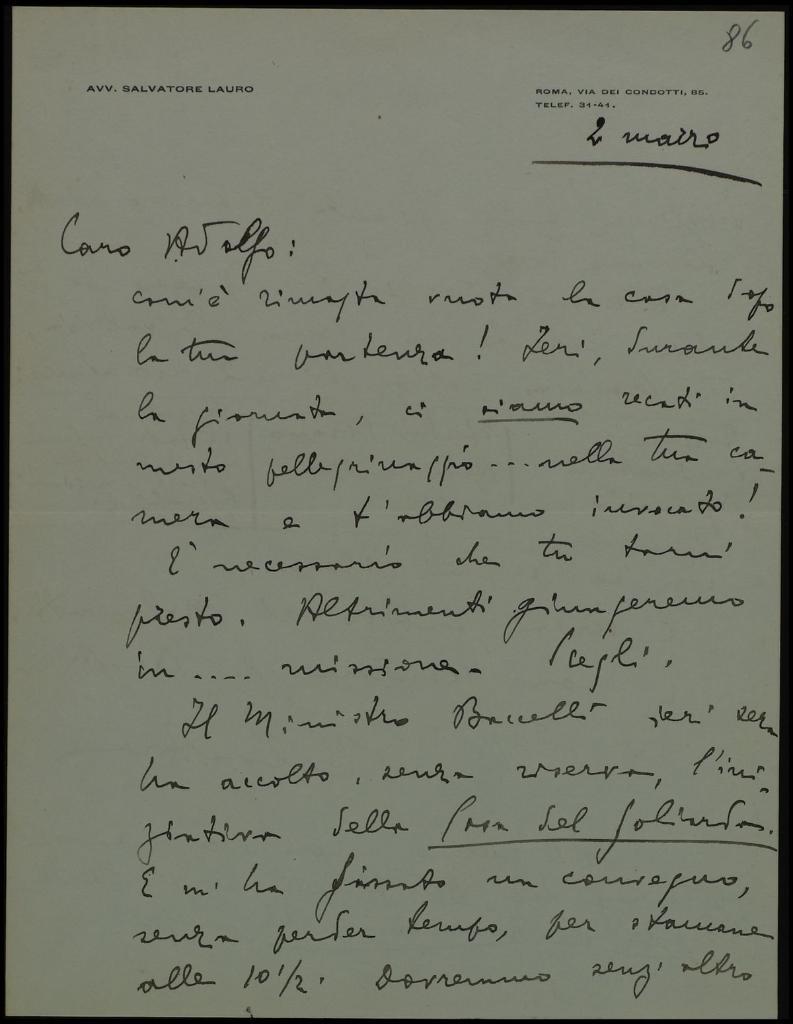 86
AVV. SALVATORE LAURO
ROMA, VIA DEI CONDOTTI, 85.
TELEF. 31-41.
2 marzo
Caro Adolfo:
com'è rimasta vuota la casa dopo
la tua partenza! Ieri, durante
la giornata, ci siamo recati in
mesto pellegrinaggio... nella tua ca-
mera e t'abbiamo invocato!
E' necessario che tu torni
presto. Altrimenti giungeremo
in .... missione. Scegli.
Il Ministro Baccelli ieri sera
ha accolto, senza riserva, l'ini-
ziativa della Casa del Goliardo.
E m'ha fissato un convegno,
senza perder tempo, per stamane
alle 10 1/2. Dovremmo senz'altro